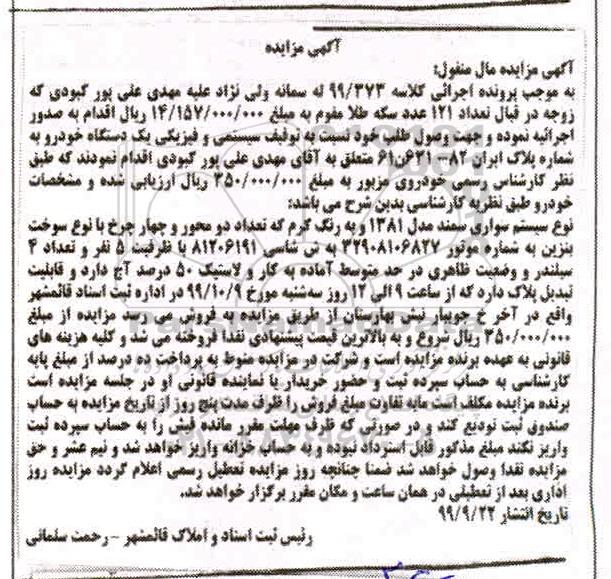 آگهی مزایده
آگهی مزایده مال منقول:
به موجب پرونده اجرائی کلاسه ۹۹/۳۷۳ له سمانه ولی نژاد علیه مهدی علی پور کبودی که
زوجه در قبال تعداد ۱۲۱ عدد سکه طلا مقوم به مبلغ ۱۴/۱۵۷/۰۰۰/۰۰۰ ریال اقدام به صدور
اجرائیه نموده و جهت وصول طلب خود نسبت به توقیف سیستمی و فیزیکی یک دستگاه خودرو به
شماره پلاک ایران ۸۲- ۶۳۱ن۶۱ متعلق به آقای مهدی علی پور کبودی اقدام نمودند که طبق
نظر کارشناس رسمی خودروی مزبور به مبلغ ۳۵۰/۰۰۰/۰۰۰ ریال ارزیابی شده و مشخصات
خودرو طبق نظریه کارشناسی بدین شرح می باشد:
نوع سیستم سواری سمند مدل ۱۳۸۱ و به رنگ کرم که تعداد دو محور و چهار چرخ با نوع سوخت
بنزین به شماره موتور ۳۲۹۰۸۱۰۶۸۲۷ به ش شاسی ۸۱۲۰۶۱۹۱ با ظرفیت ۵ نفر و تعداد ۴
سیلندر و وضعیت ظاهری در حد متوسط آماده به کار و لاستیک ۵۰ درصد آج دارد و قابلیت
تبدیل پلاک دارد که از ساعت ۹ الی ۱۲ روز سه‌شنبه مورخ ۹۹/۱۰/۹ در اداره ثبت اسناد قائمشهر
واقع در آخر خ جویبار نبش بهارستان از طریق مزایده به فروش می رسد مزایده از مبلغ
۳۵۰/۰۰۰/۰۰۰ ریال شروع و به بالاترین قیمت پیشنهادی نقدا فروخته می شد و کلیه هزینه های
قانونی به عهده برنده مزایده است و شرکت در مزایده منوط به پرداخت ده درصد از مبلغ پایه
کارشناسی به حساب سپرده ثبت و حضور خریدار یا نماینده قانونی او در جلسه مزایده است
برنده مزایده مکلف است مابه تفاوت مبلغ فروش را ظرف مدت پنج روز از تاریخ مزایده به حساب
صندوق ثبت تودیع کند و در صورتی که ظرف مهلت مقرر مانده فیش را به حساب سپرده ثبت
واریز نکند مبلغ مذکور قابل استرداد نبوده و به حساب خزانه واریز خواهد شد و نیم عشر و حق
مزایده نقدا وصول خواهد شد ضمنا چنانچه روز مزایده تعطیل رسمی اعلام گردد مزایده روز
اداری بعد از تعطیلی در همان ساعت و مکان مقرر برگزار خواهد شد.
تاریخ انتشار ۹۹/۹/۲۲
رئیس ثبت اسناد و املاک قائمشهر - رحمت سلمانی